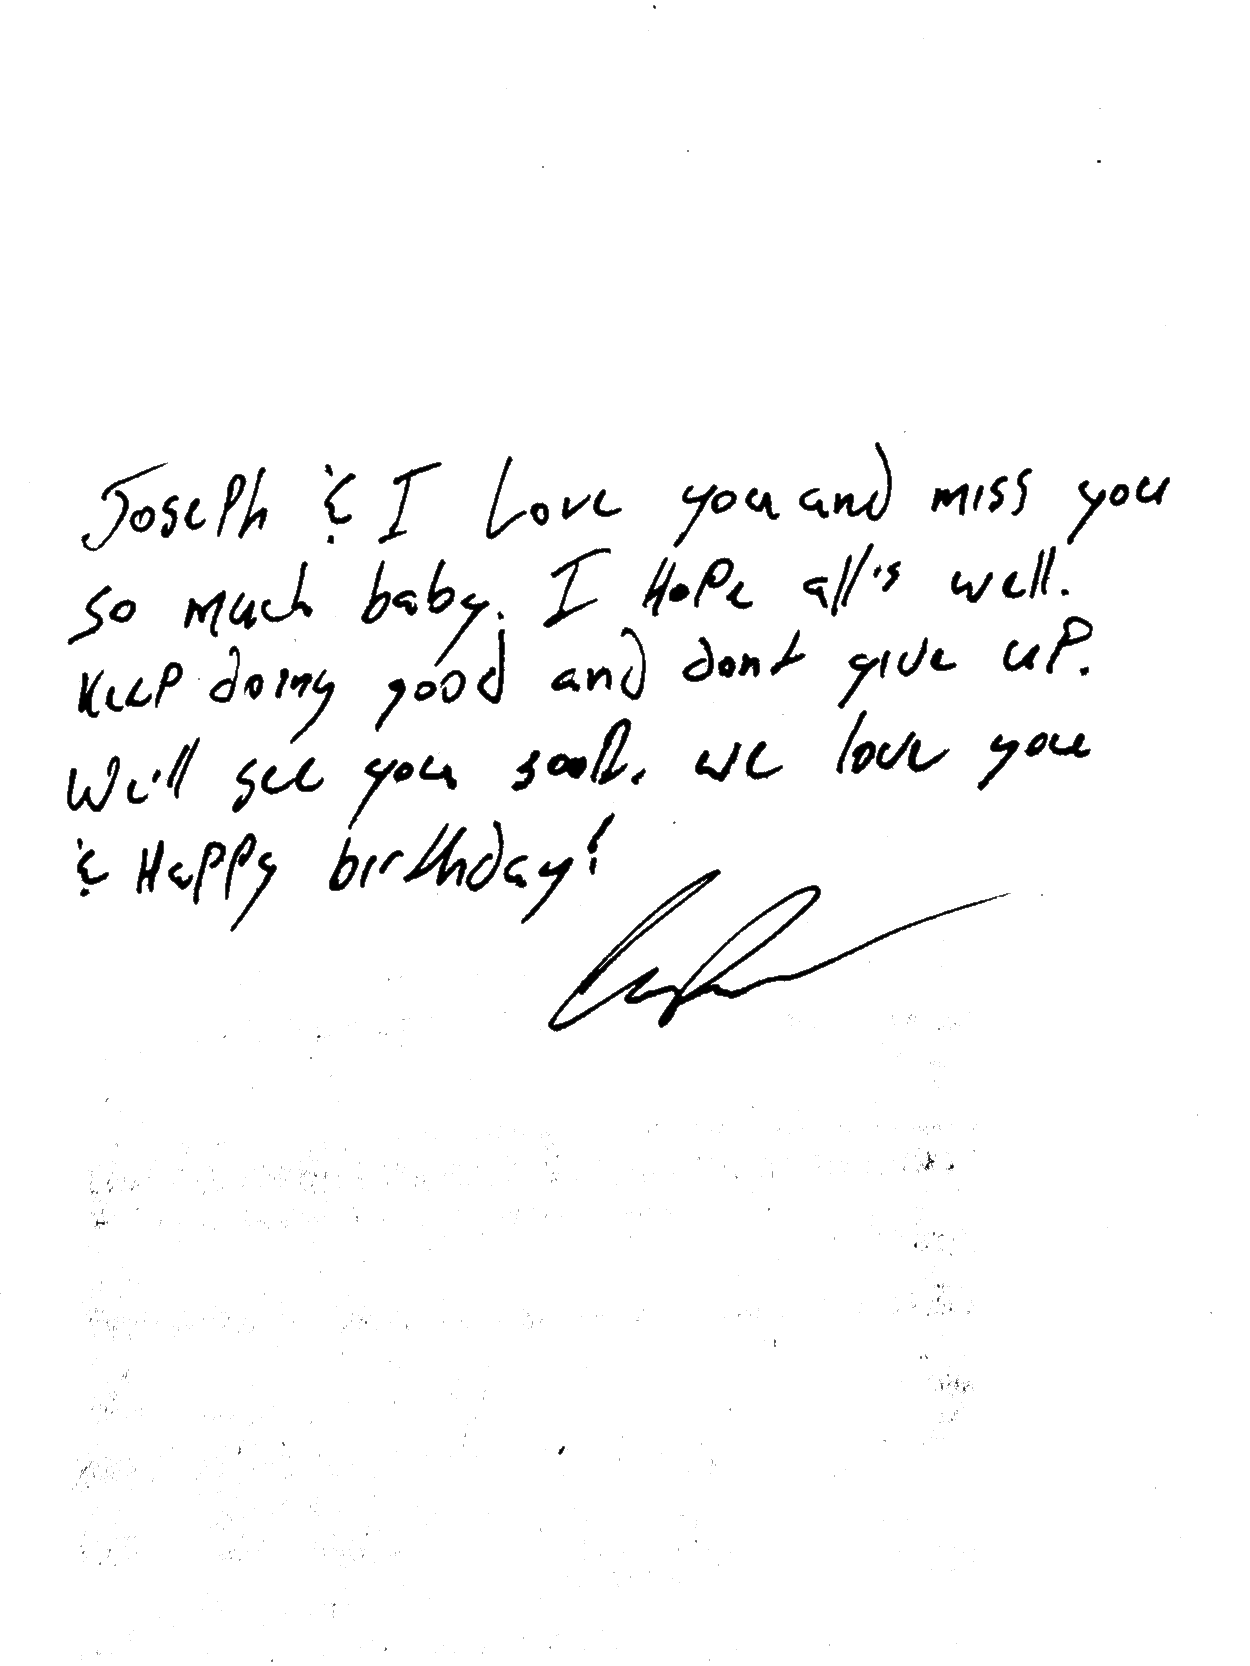 Joseph & I Love you and miss you
so much baby. I Hope all's well.
Keep doing good and dont give up.
We'll see you soon. we love you
& Happy birthday!